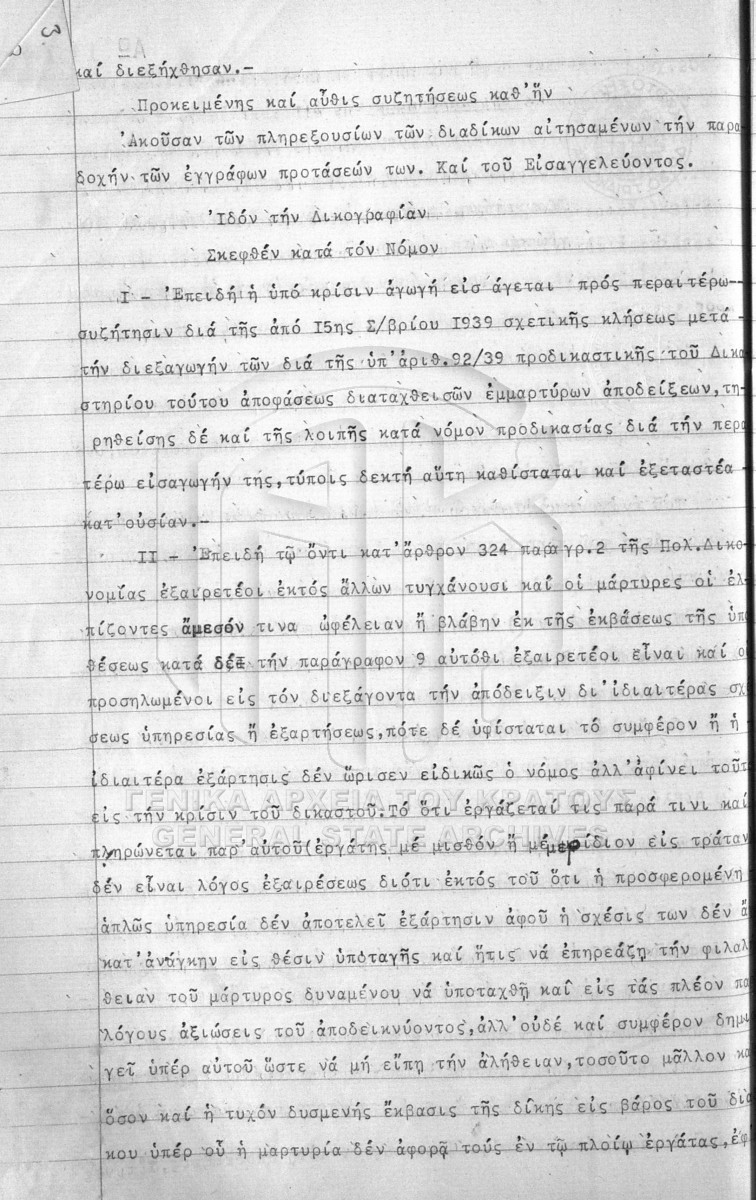 3
καί διεξήχθησαν.-
Προκειμένης καί αὖθις συζητήσεως καθ'ἥν
Ἀκοῦσαν τῶν πληρεξουσίων τῶν διαδίκων αἰτησαμένων τήν παρα
δοχήν τῶν ἐγγράφων προτάσεών των. Καί τοῦ Εἰσαγγελεύοντος.
Ἰδόν τήν Δικογραφίαν
Σκεφθέν κατά τόν Νόμον
I - Ἐπειδή ἡ ὑπό κρίσιν ἀγωγή εἰσ ἄγεται πρός περαιτέρω--
συζήτησιν διά τῆς ἀπό I5ης Σ/βρίου I939 σχετικῆς κλήσεως μετά -
τήν διεξαγωγήν τῶν διά τῆς ὑπ'ἀριθ.92/39 προδικαστικῆς τοῦ Δικα
στηρίου τούτου ἀποφάσεως διαταχθεισῶν ἐμμαρτύρων ἀποδείξεων,τη-
ρηθείσης δέ καί τῆς λοιπῆς κατά νόμον προδικασίας διά τήν περα
τέρω εἰσαγωγήν της,τύποις δεκτή αὕτη καθίσταται καί ἐξεταστέα -
κατ'οὐσίαν.-
II - Ἐπειδή τῷ ὄντι κατ'ἄρθρον 324 παραγρ.2 τῆς Πολ.Δικο-
νομίας ἐξαιρετέοι ἐκτός ἄλλων τυγχάνουσι καί οἱ μάρτυρες οἱ ἐλ-
πίζοντες ἄμεσόν τινα ὠφέλειαν ἤ βλάβην ἐκ τῆς ἐκβάσεως τῆς ὑπο
θέσεως κατά δέ τήν παράγραφον 9 αὐτόθι ἐξαιρετέοι εἶναι καί οἱ
προσηλωμένοι εἰς τόν διεξάγοντα τήν ἀπόδειξιν δι'ἰδιαιτέρας σχέ
σεως ὑπηρεσίας ἤ ἐξαρτήσεως,πότε δέ ὑφίσταται τό συμφέρον ἤ ἡ
ἰδιαιτέρα ἐξάρτησις δέν ὥρισεν εἰδικῶς ὁ νόμος ἀλλ'ἀφίνει τοῦτο
εἰς τήν κρίσιν τοῦ δικαστοῦ.Τό ὅτι ἐργάζεταί τις παρά τινι καί
πληρώνεται παρ'αὐτοῦ(ἐργάτης μέ μισθόν ἤ μέ μερίδιον εἰς τράταν
δέν εἶναι λόγος ἐξαιρέσεως διότι ἐκτός τοῦ ὅτι ἡ προσφερομένη
ἁπλῶς ὑπηρεσία δέν ἀποτελεῖ ἐξάρτησιν ἀφοῦ ἡ σχέσις των δέν ἄ
κατ'ἀνάγκην εἰς θέσιν ὑποταγῆς καί ἥτις νά ἐπηρεάζῃ τήν φιλαλ
θειαν τοῦ μάρτυρος δυναμένου νά ὑποταχθῇ καί εἰς τάς πλέον πα
λόγους ἀξιώσεις τοῦ ἀποδεικνύοντος,ἀλλ'οὐδέ καί συμφέρον δημι
γεῖ ὑπέρ αὐτοῦ ὥστε νά μή εἴπῃ τήν ἀλήθειαν,τοσοῦτο μᾶλλον κα
ὅσον καί ἡ τυχόν δυσμενής ἔκβασις τῆς δίκης εἰς βάρος τοῦ δια
κου ὑπέρ οὗ ἡ μαρτυρία δέν ἀφορᾷ τούς ἐν τῷ πλοίῳ ἐργάτας,ἐφ'
ΓΕΝΙΚΑ ΑΡΧΕΙΑ ΤΟΥ ΚΡΑΤΟΥΣ
GENERAL STATE ARCHIVES